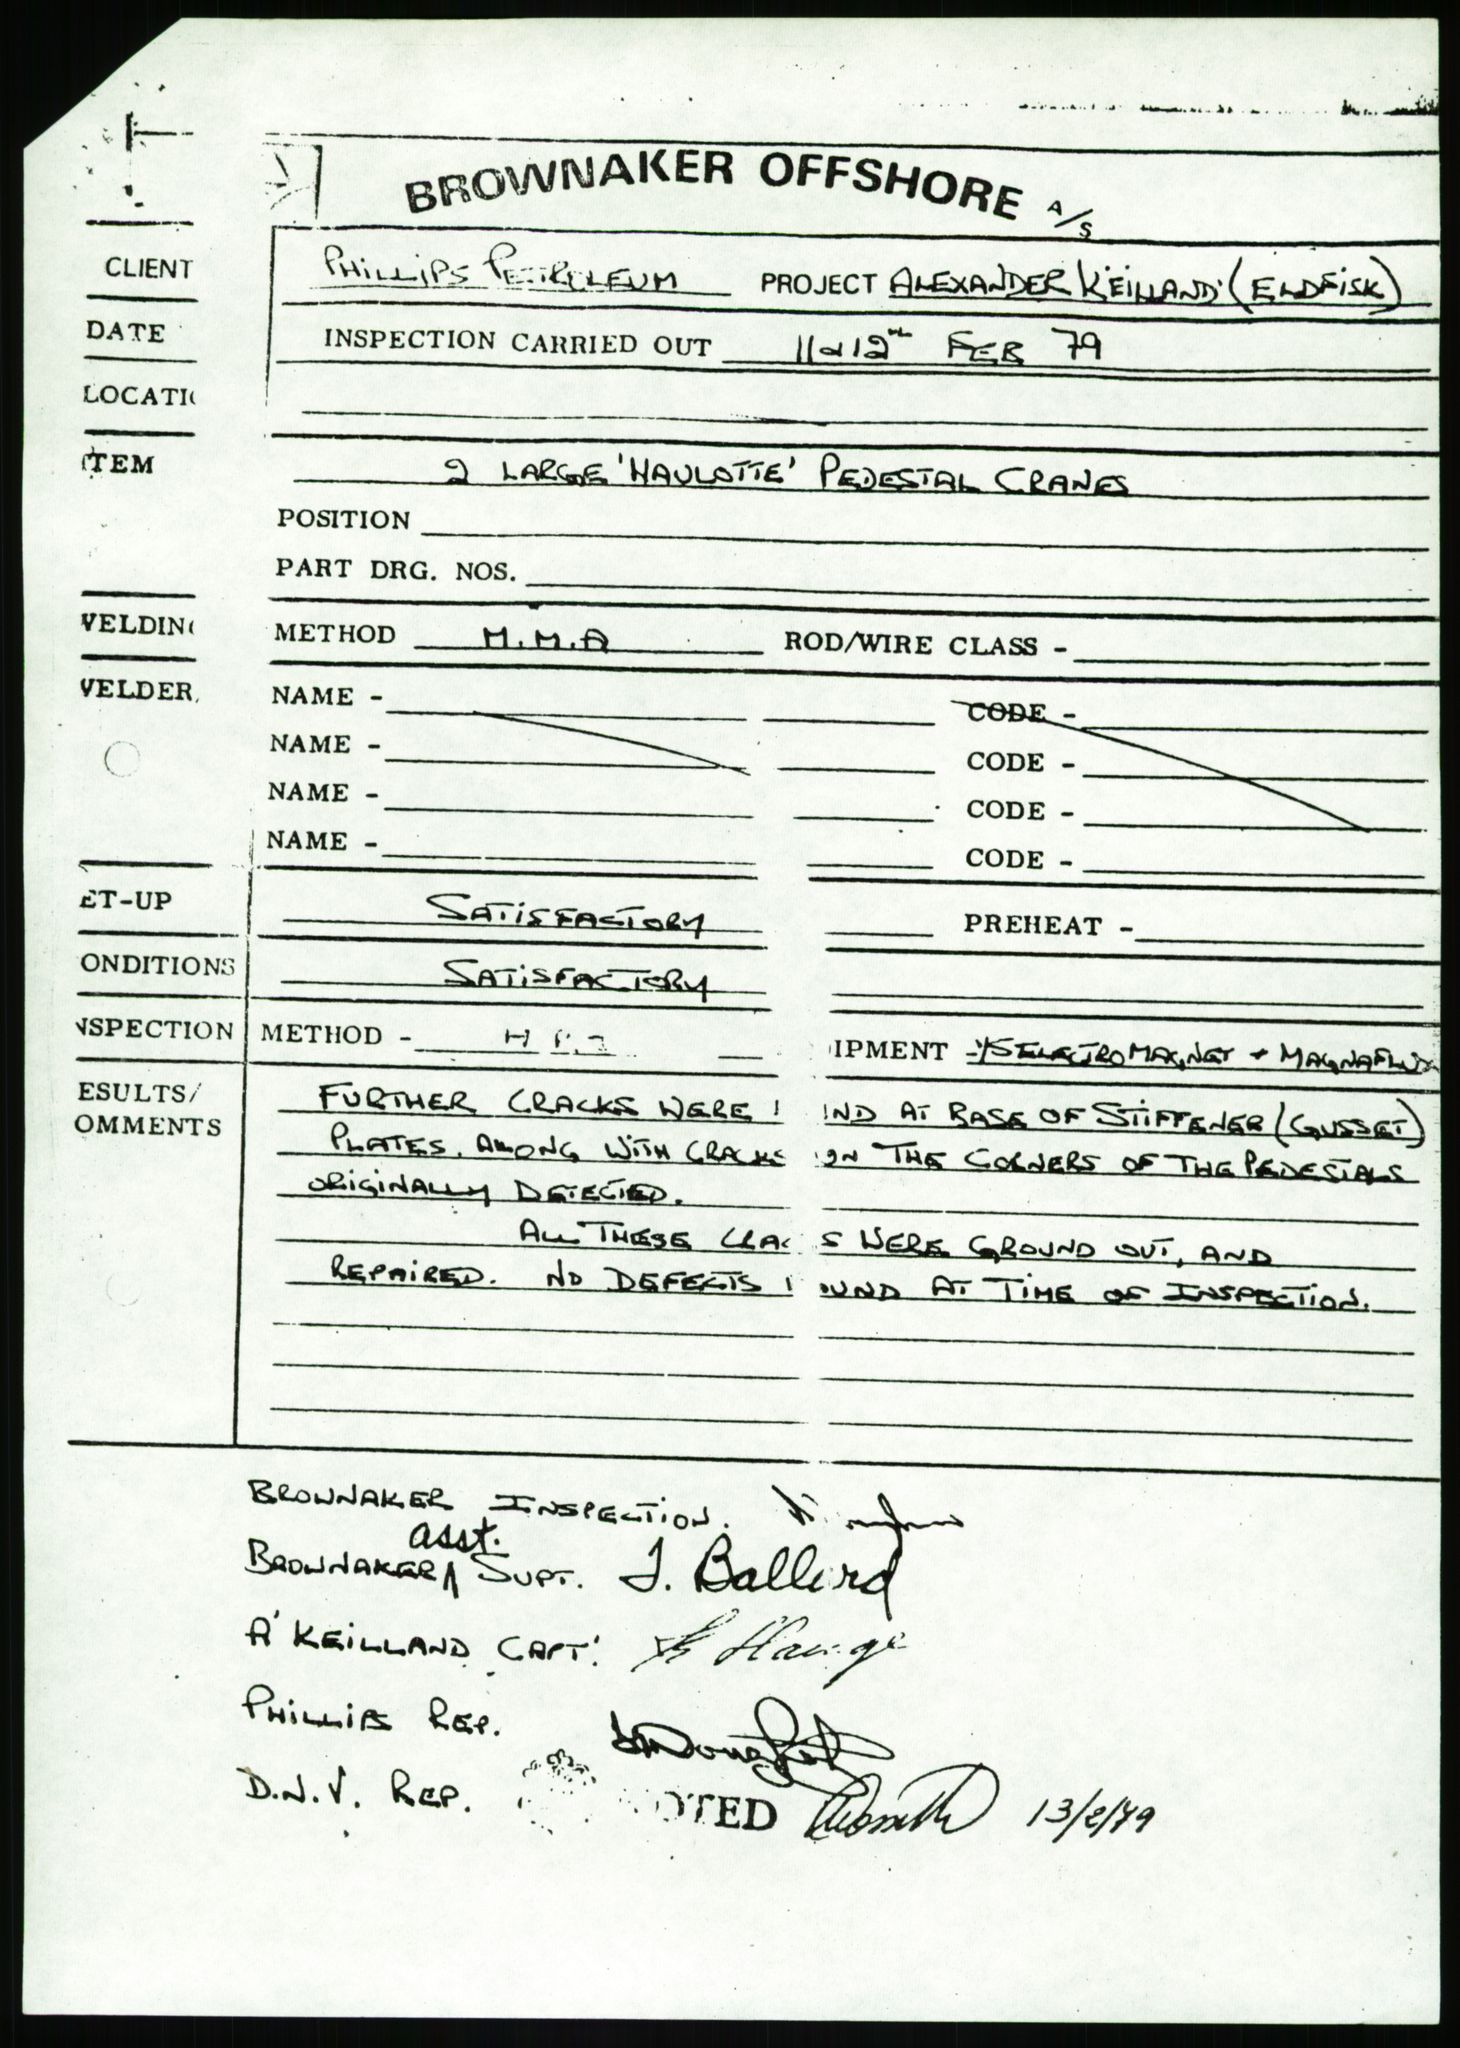 BROWNAKER OFFSHORE A/S
CLIENT PHILLIPS PETROLEUM PROJECT ALEXANDER KEILLAND (ELDFISK)
DATE INSPECTION CARRIED OUT 11 & 12th FEB 79
LOCATI
ITEM 2 LARGE 'HAULOTTE' PEDESTAL CRANES
POSITION
PART DRG. NOS.
WELDING METHOD M.M.A ROD/WIRE CLASS -
WELDER NAME - CODE -
NAME - CODE -
NAME - CODE -
NAME - CODE -
ET-UP SATISFACTORY PREHEAT -
ONDITIONS SATISFACTORY
NSPECTION METHOD - IPMENT - ELECTROMAGNET + MAGNAFLUX
ESULTS/ FURTHER CRACKS WERE UND AT BASE OF STIFFENER (GUSSET)
OMMENTS PLATES. ALONG WITH CRACKS ON THE CORNERS OF THE PEDESTALS
ORIGINALLY DETECTED.
ALL THESE CRACKS WERE GROUND OUT, AND
REPAIRED. NO DEFECTS FOUND AT TIME OF INSPECTION.
BROWNAKER INSPECTION.
BROWNAKER asst. SUPT. J. Ballard
A' KEILLAND CAPT'.
PHILLIPS REP.
D.N.V. REP. NOTED 13/2/79